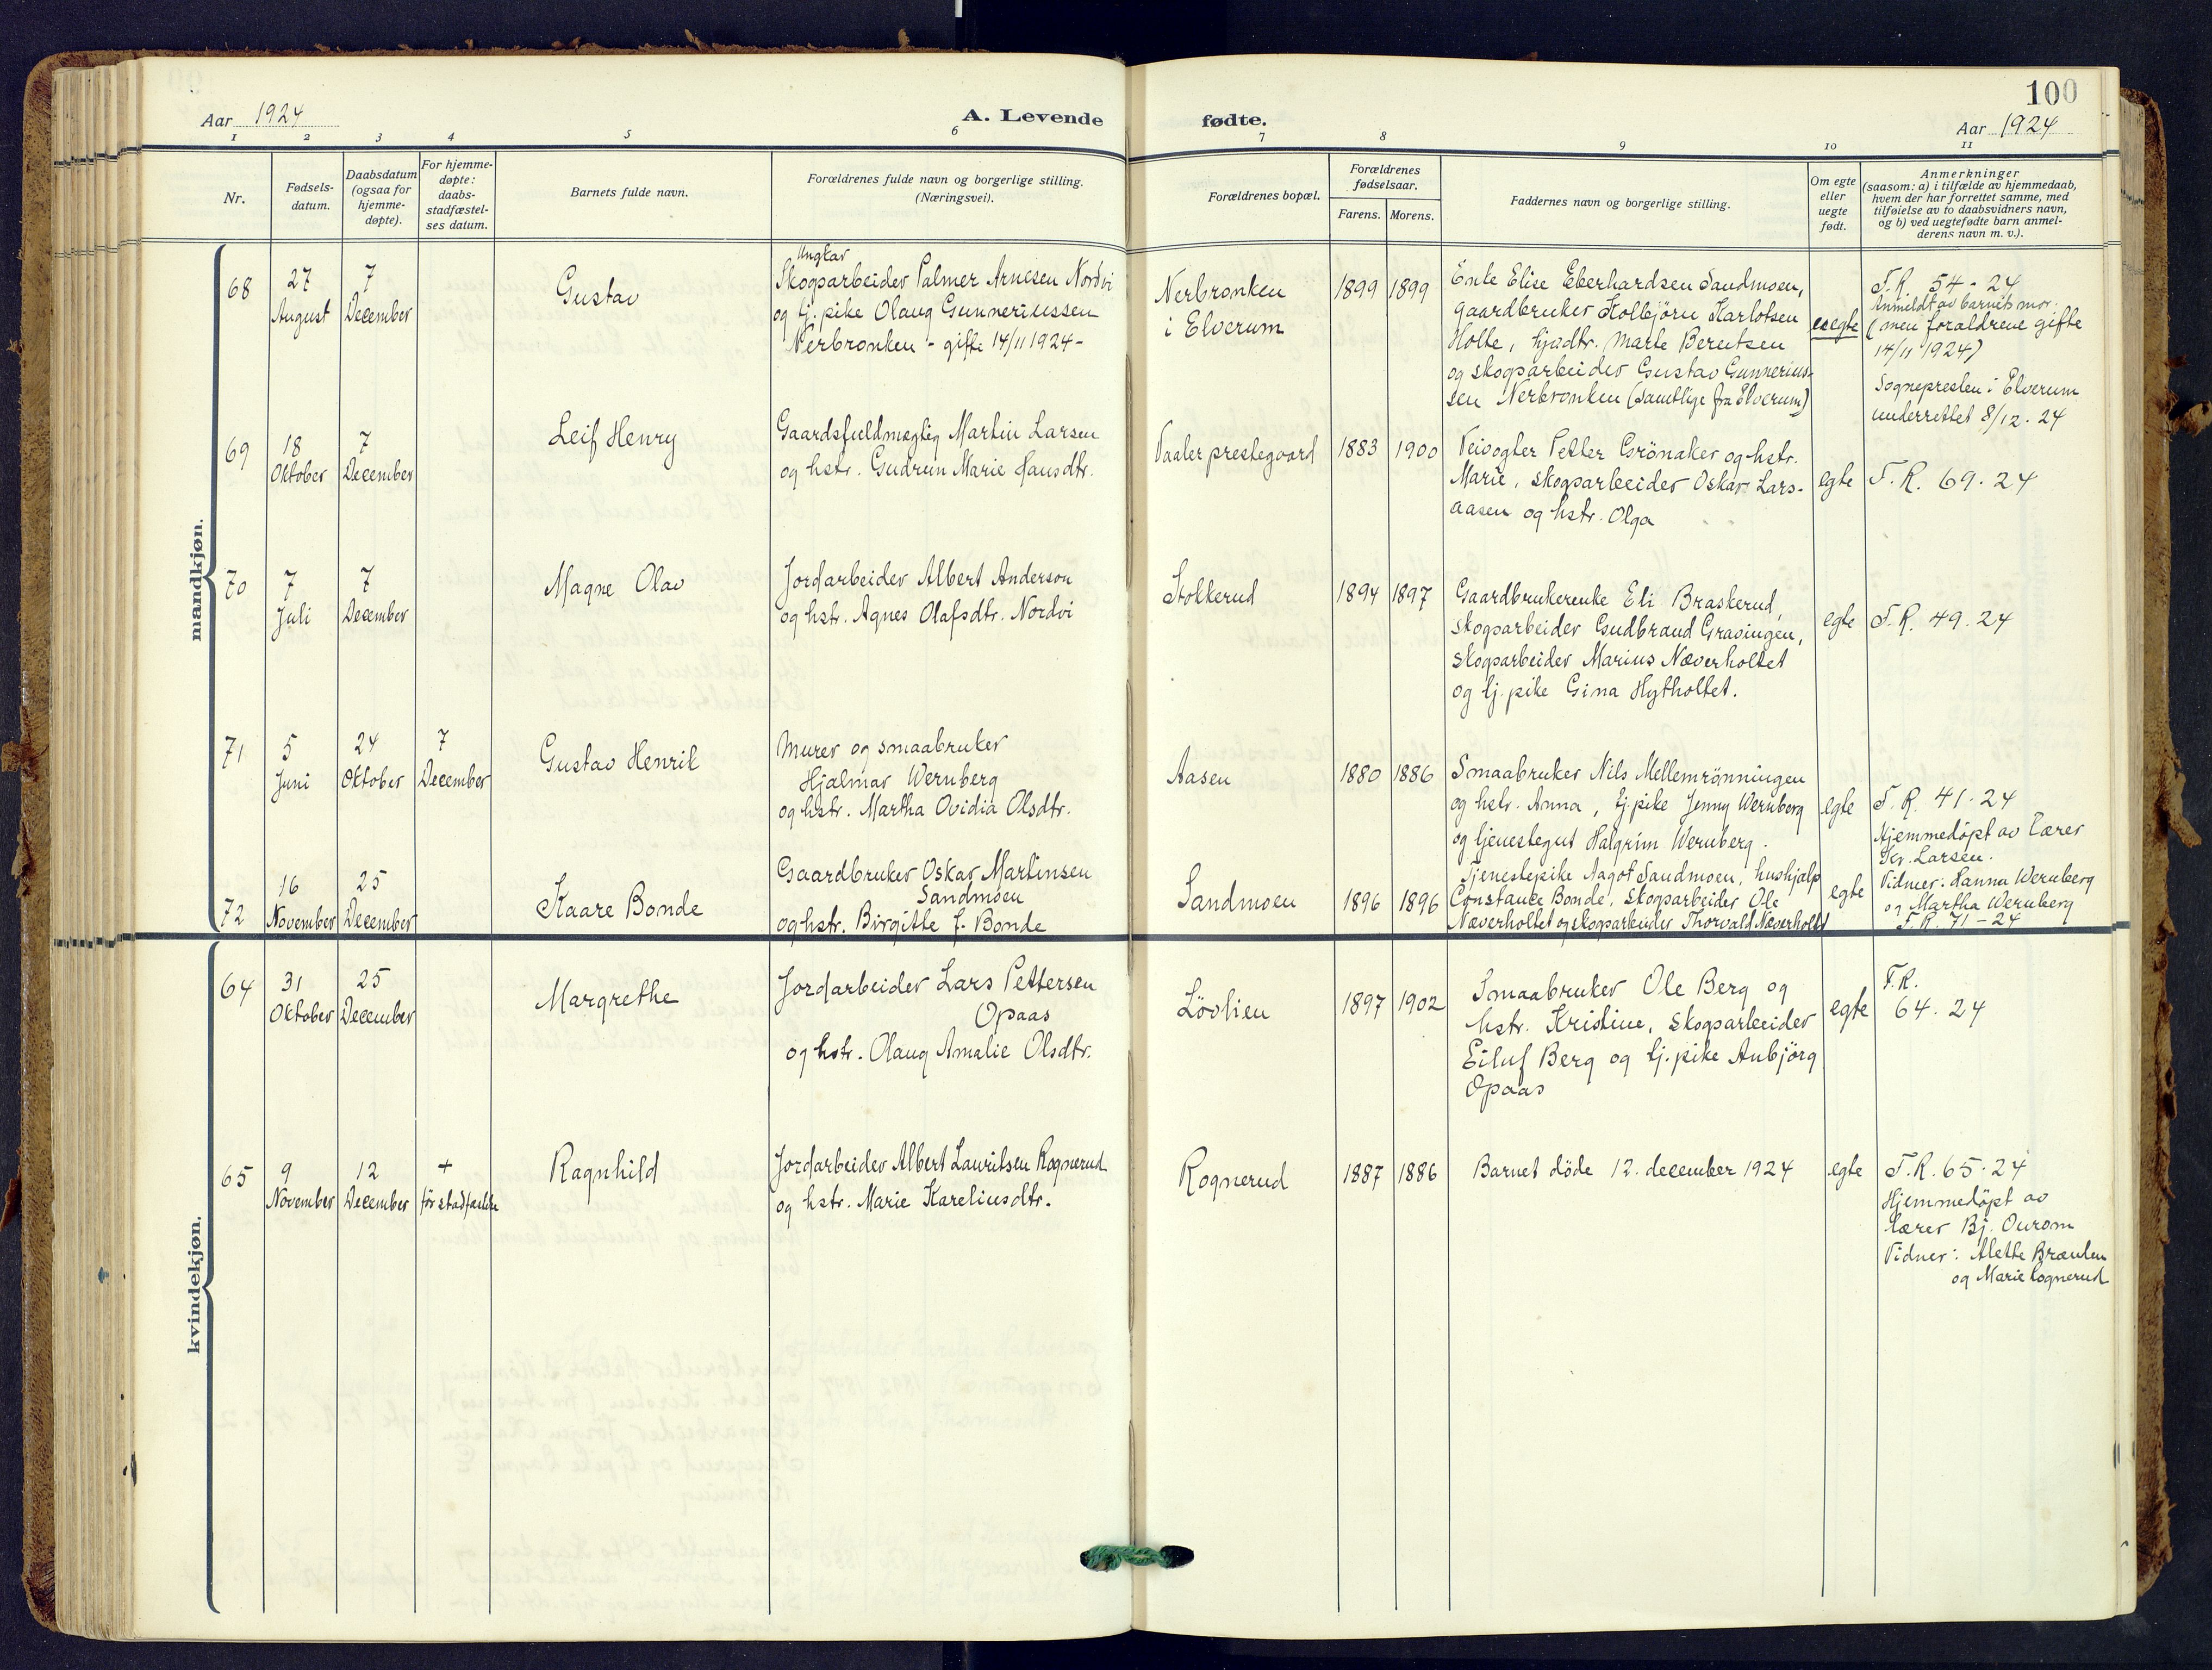 100
Aar 1924
A. Levende fødte.
Aar 1924
1 2 3 4 5 6 7 8 9 10 11
Nr.
Fødsels-
datum.
Daabsdatum
(ogsaa for
hjemme-
døpte).
For hjemme-
døpte:
daabs-
stadfæstel-
ses datum.
Barnets fulde navn.
Forældrenes fulde navn og borgerlige stilling.
(Næringsvei).
Forældrenes bopæl.
Forældrenes
fødselsaar.
Farens. Morens.
Faddernes navn og borgerlige stilling.
Om egte
eller
uegte
født.
Anmerkninger
(saasom: a) i tilfælde av hjemmedaab,
hvem der har forrettet samme, med
tilføielse av to daabsvidners navn,
og b) ved uegtefødte barn anmel-
derens navn m. v.).
mandkjøn.
68
27
August
7
December
Gustav
Ungkar
Skogsarbeider Palmer Arnesen Nordvi
og tj. pike Olaug Gunneriussen
Nerbronken - gifte 14/11 1924 -
Nerbronken
i Elverum
1899
1899
Enke Elise Eberhardsen Sandmoen,
gaardbruker Kolbjörn Karlotsen
Holte, hjadtr. Marte Berentsen
og skogsarbeider Gustav Gunnerius-
sen Nerbronken (samtlige fra Elverum)
uegte
F.R. 54 - 24
Anmeldt av barnets mor.
(men foraldrene gifte
14/11 1924)
Sognepresten i Elverum
underrettet 8/12. 24
69
18
Oktober
7
December
Leif Henry
Gaardsfuldmægtig Martin Larsen
og hstr. Gudrun Marie Hansdtr.
Vaaler prestegaard
1883
1900
Veivogter Petter Grönaker og hstr.
Marie, skogsarbeider Oskar Lars-
aasen og hstr. Olga
egte
F. R. 69. 24
70
7
Juli
7
December
Magne Olav
Jordarbeider Albert Anderson
og hstr. Agnes Olafsdtr. Nordvi
Stolkerud
1894
1897
Gaardbrukerenke Eli Braskerud,
skogsarbeider Gudbrand Grasingen,
skogsarbeider Marius Næverholtet
og tj. pike Gina Hytholtet.
egte
F.R. 49. 24
71
5
Juni
24
Oktober
7
December
Gustav Henrik
Murer og smaabruker
Hjalmar Wernberg
og hstr. Martha Ovidia Olsdtr.
Aasen
1880
1886
Smaabruker Nils Mellemrønningen
og hstr. Anna, tj. pike Jenny Wernberg
og tjenestegut Halgrim Wernberg.
egte
F. R. 41. 24
Hjemmedöpt av Lærer
Kr. Larsen.
Vidner: Hanna Wernberg
og Martha Wernberg
72
16
November
25
December
Kaare Bonde
Gaardbruker Oskar Martinsen
Sandmoen
og hstr. Birgitte f. Bonde
Sandmoen
1896
1896
Tjenestepike Aagot Sandmoen, hushjælp
Constance Bonde, Skogsarbeider Ole
Næverholtet og skogsarbeider Thorvald Næverholtet
egte
F. R. 71 - 24
kvindekjøn.
64
31
Oktober
25
December
Margrethe
Jordarbeider Lars Pettersen
Opaas
og hstr. Olaug Amalie Olsdtr.
Lövlien
1897
1902
Smaabruker Ole Berg og
hstr. Kristine, skogsarbeider
Eiluf Berg og tj. pike Anbjörg
Opaas
egte
F.R.
64. 24
65
9
November
12
December
+
för stadfæstelse
Ragnhild
Jordarbeider Albert Lauritsen Rognerud
og hstr. Marie Kareliusdtr.
Rognerud
1887
1886
Barnet döde 12. december 1924
egte
F.R. 65. 24
Hjemmedöpt av
lærer Bj. Ourom
Vidner: Alette Brænden
og Marie Rognerud